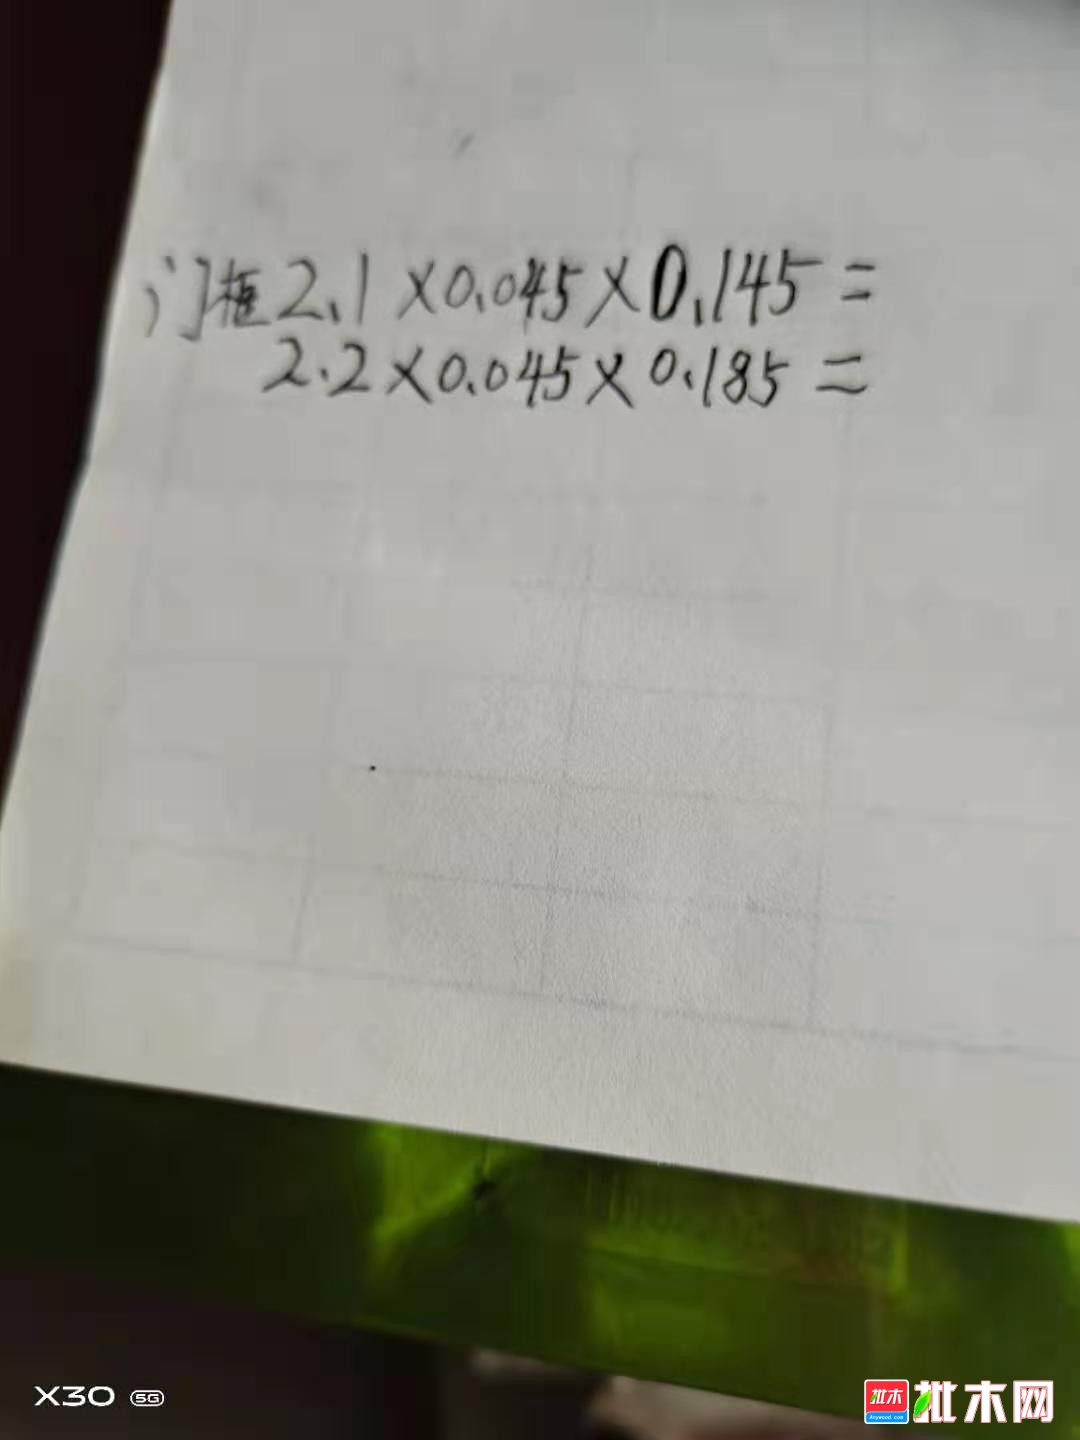 门框2.1×0.045×0.145=
2.2×0.045×0.185=
X30 5G
批木 批木网
Anywood.com